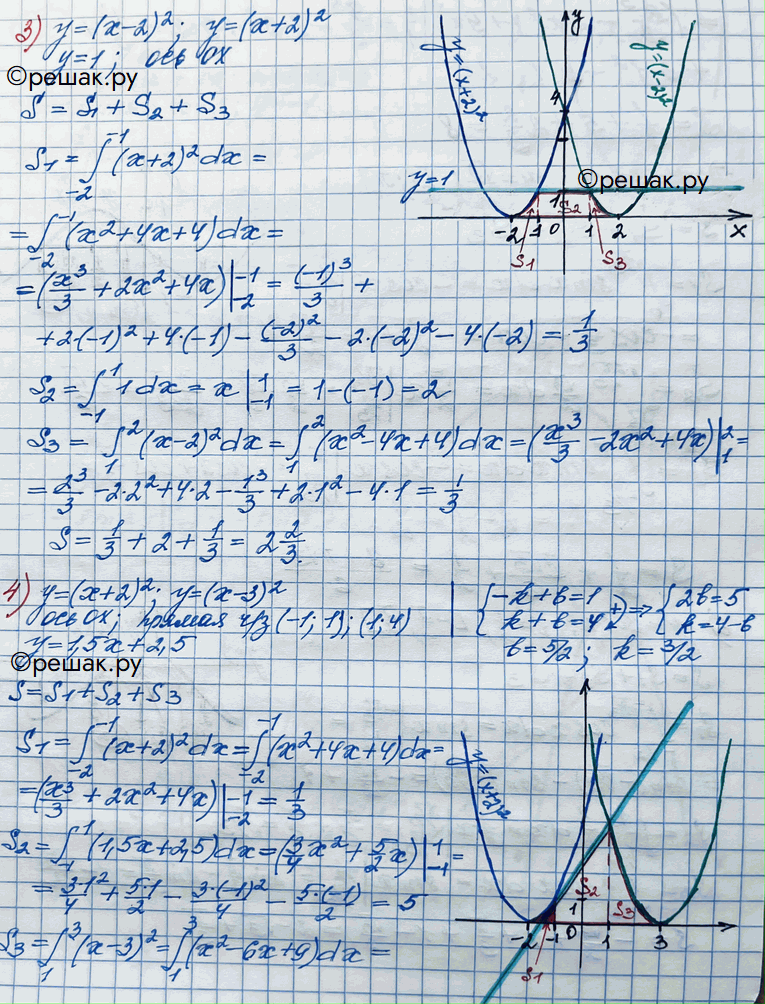 3) y=(x-2)²; y=(x+2)²
y=1; ось ОХ
©решак.ру
S = S1 + S2 + S3
S1 = ∫₋₂⁻¹ (x+2)² dx =
= ∫₋₂⁻¹ (x²+4x+4) dx =
= (x³/3 + 2x² + 4x) |₋₂⁻¹ = (-1)³/3 +
+ 2·(-1)² + 4·(-1) - (-2)²/3 - 2·(-2)² - 4·(-2) = 1/3
S2 = ∫₋₁¹ 1 dx = x |₋₁¹ = 1-(-1) = 2
S3 = ∫₁² (x-2)² dx = ∫₁² (x²-4x+4) dx = (x³/3 - 2x² + 4x) |₁² =
= 2³/3 - 2·2² + 4·2 - 1³/3 + 2·1² - 4·1 = 1/3
S = 1/3 + 2 + 1/3 = 2 2/3.
y
y=(x+2)²
y=(x-2)²
4
y=1
©решак.ру
1
S2
-2 -1 0 1 2 x
S1 S3
4) y=(x+2)²; y=(x-3)²
ось ОХ; прямая ч/з (-1; 1); (1; 4)
y=1,5x+2,5
©решак.ру
{-k+b=1
k+b=4 +) => {2b=5
k=4-b
b=5/2; k=3/2
S=S1+S2+S3
S1 = ∫₋₂⁻¹ (x+2)² dx = ∫₋₂⁻¹ (x²+4x+4) dx =
= (x³/3 + 2x² + 4x) |₋₂⁻¹ = 1/3
S2 = ∫₋₁¹ (1,5x+2,5) dx = (3/4 x² + 5/2 x) |₋₁¹ =
= 3·1²/4 + 5·1/2 - 3·(-1)²/4 - 5·(-1)/2 = 5
S3 = ∫₁³ (x-3)² = ∫₁³ (x²-6x+9) dx =
y=(x+2)²
S2
1
S3
-2 -1 0 1 3
S1